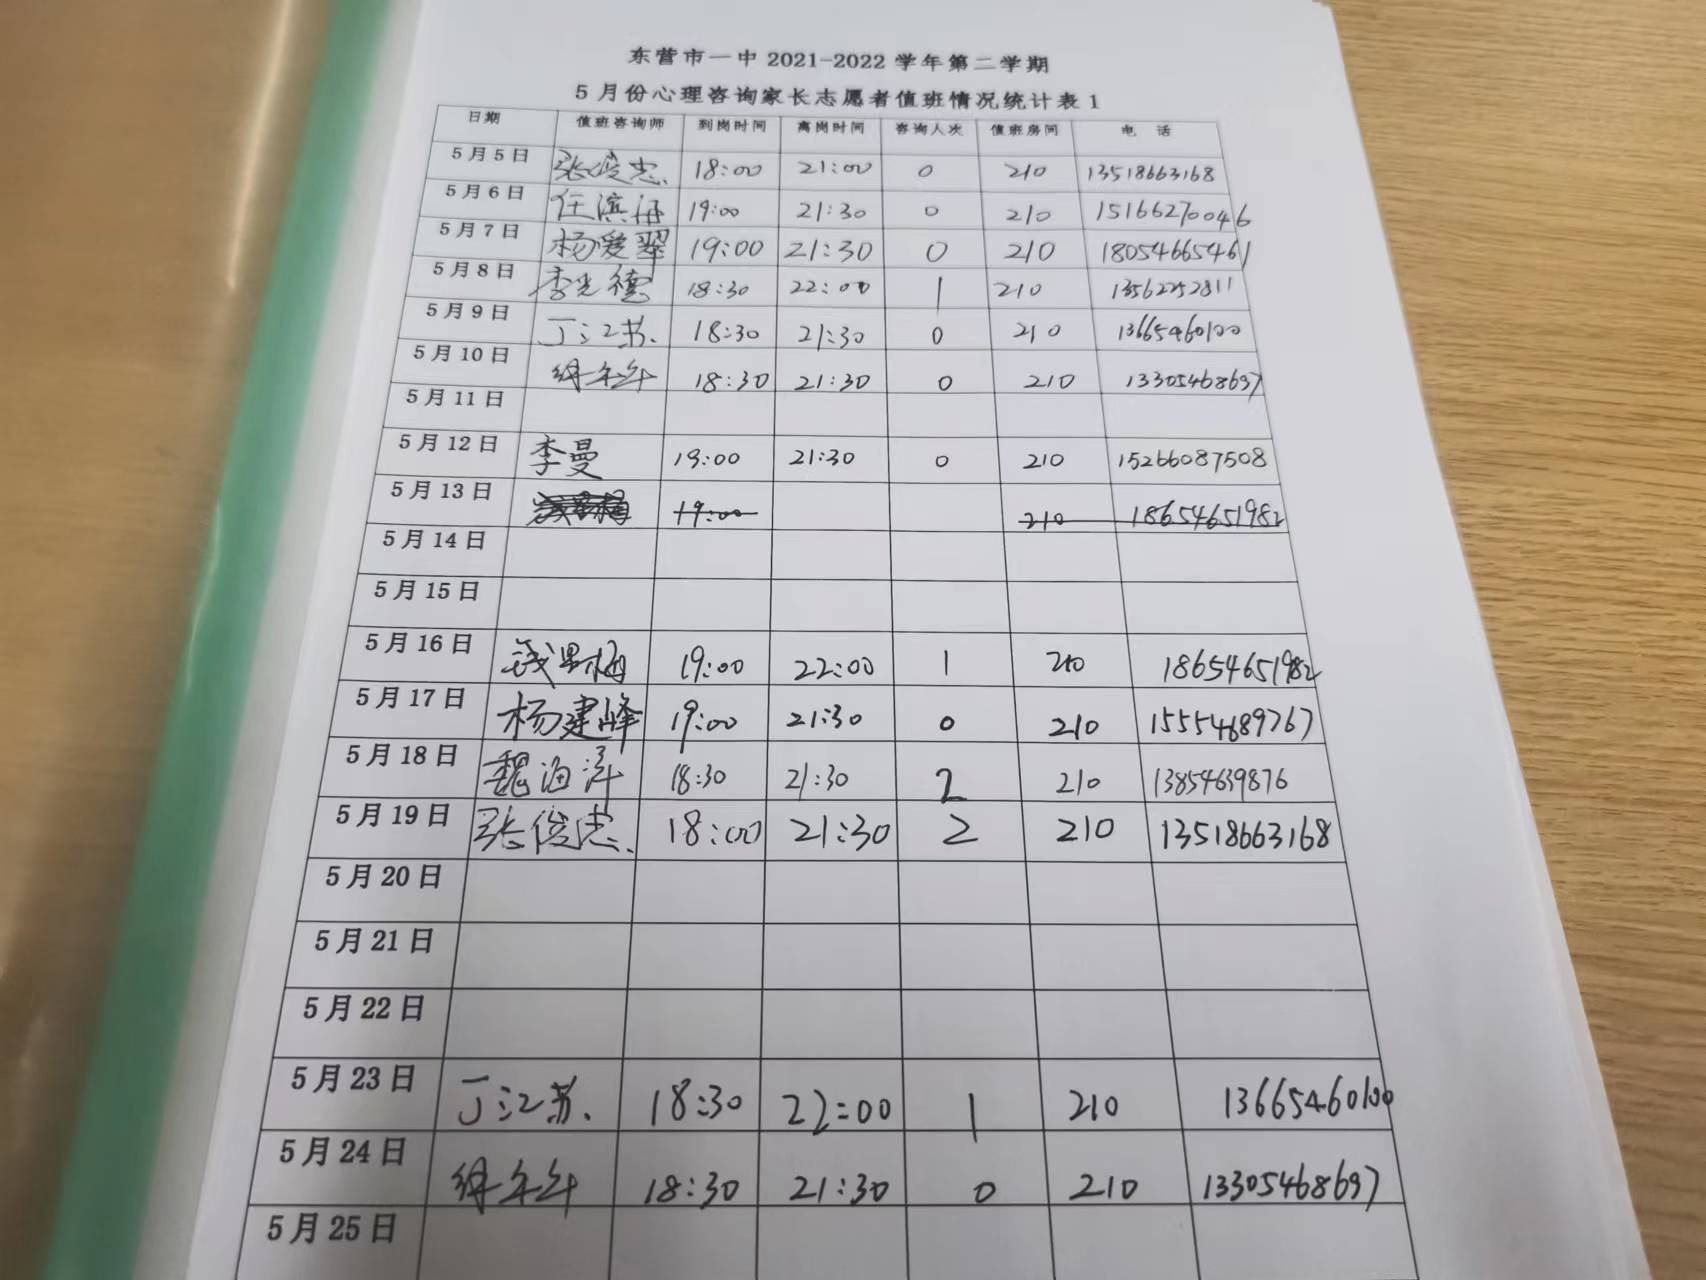 东营市一中 2021-2022 学年第二学期
5 月份心理咨询家长志愿者值班情况统计表 1
日期 值班咨询师 到岗时间 离岗时间 咨询人次 值班房间 电 话
5 月 5 日 张俊忠 18:00 21:00 0 210 13518663168
5 月 6 日 任滨海 19:00 21:30 0 210 15166270046
5 月 7 日 杨爱翠 19:00 21:30 0 210 18054665461
5 月 8 日 李光德 18:30 22:00 1 210 13562252811
5 月 9 日 丁江苏 18:30 21:30 0 210 13665460100
5 月 10 日 18:30 21:30 0 210 13305468697
5 月 11 日
5 月 12 日 李曼 19:00 21:30 0 210 15266087508
5 月 13 日 19:00 210 18654651982
5 月 14 日
5 月 15 日
5 月 16 日 19:00 22:00 1 210 18654651982
5 月 17 日 杨建峰 19:00 21:30 0 210 15554689767
5 月 18 日 魏海洋 18:30 21:30 2 210 13854639876
5 月 19 日 张俊忠 18:00 21:30 2 210 13518663168
5 月 20 日
5 月 21 日
5 月 22 日
5 月 23 日 丁江苏 18:30 22:00 1 210 13665460100
5 月 24 日 18:30 21:30 0 210 13305468697
5 月 25 日